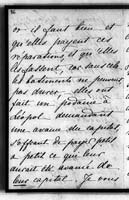 or il faut bien et
qu'elles payent ces
réparations, et qu'elles
les fassent, car sans cela
les bastiments ne peuvent
pas durer, elles ont
fait un
demandant
une avance du capital,
s'offrant de payer petit
a petit ce que leur
aurait été avancé de
leur capital. Je vous